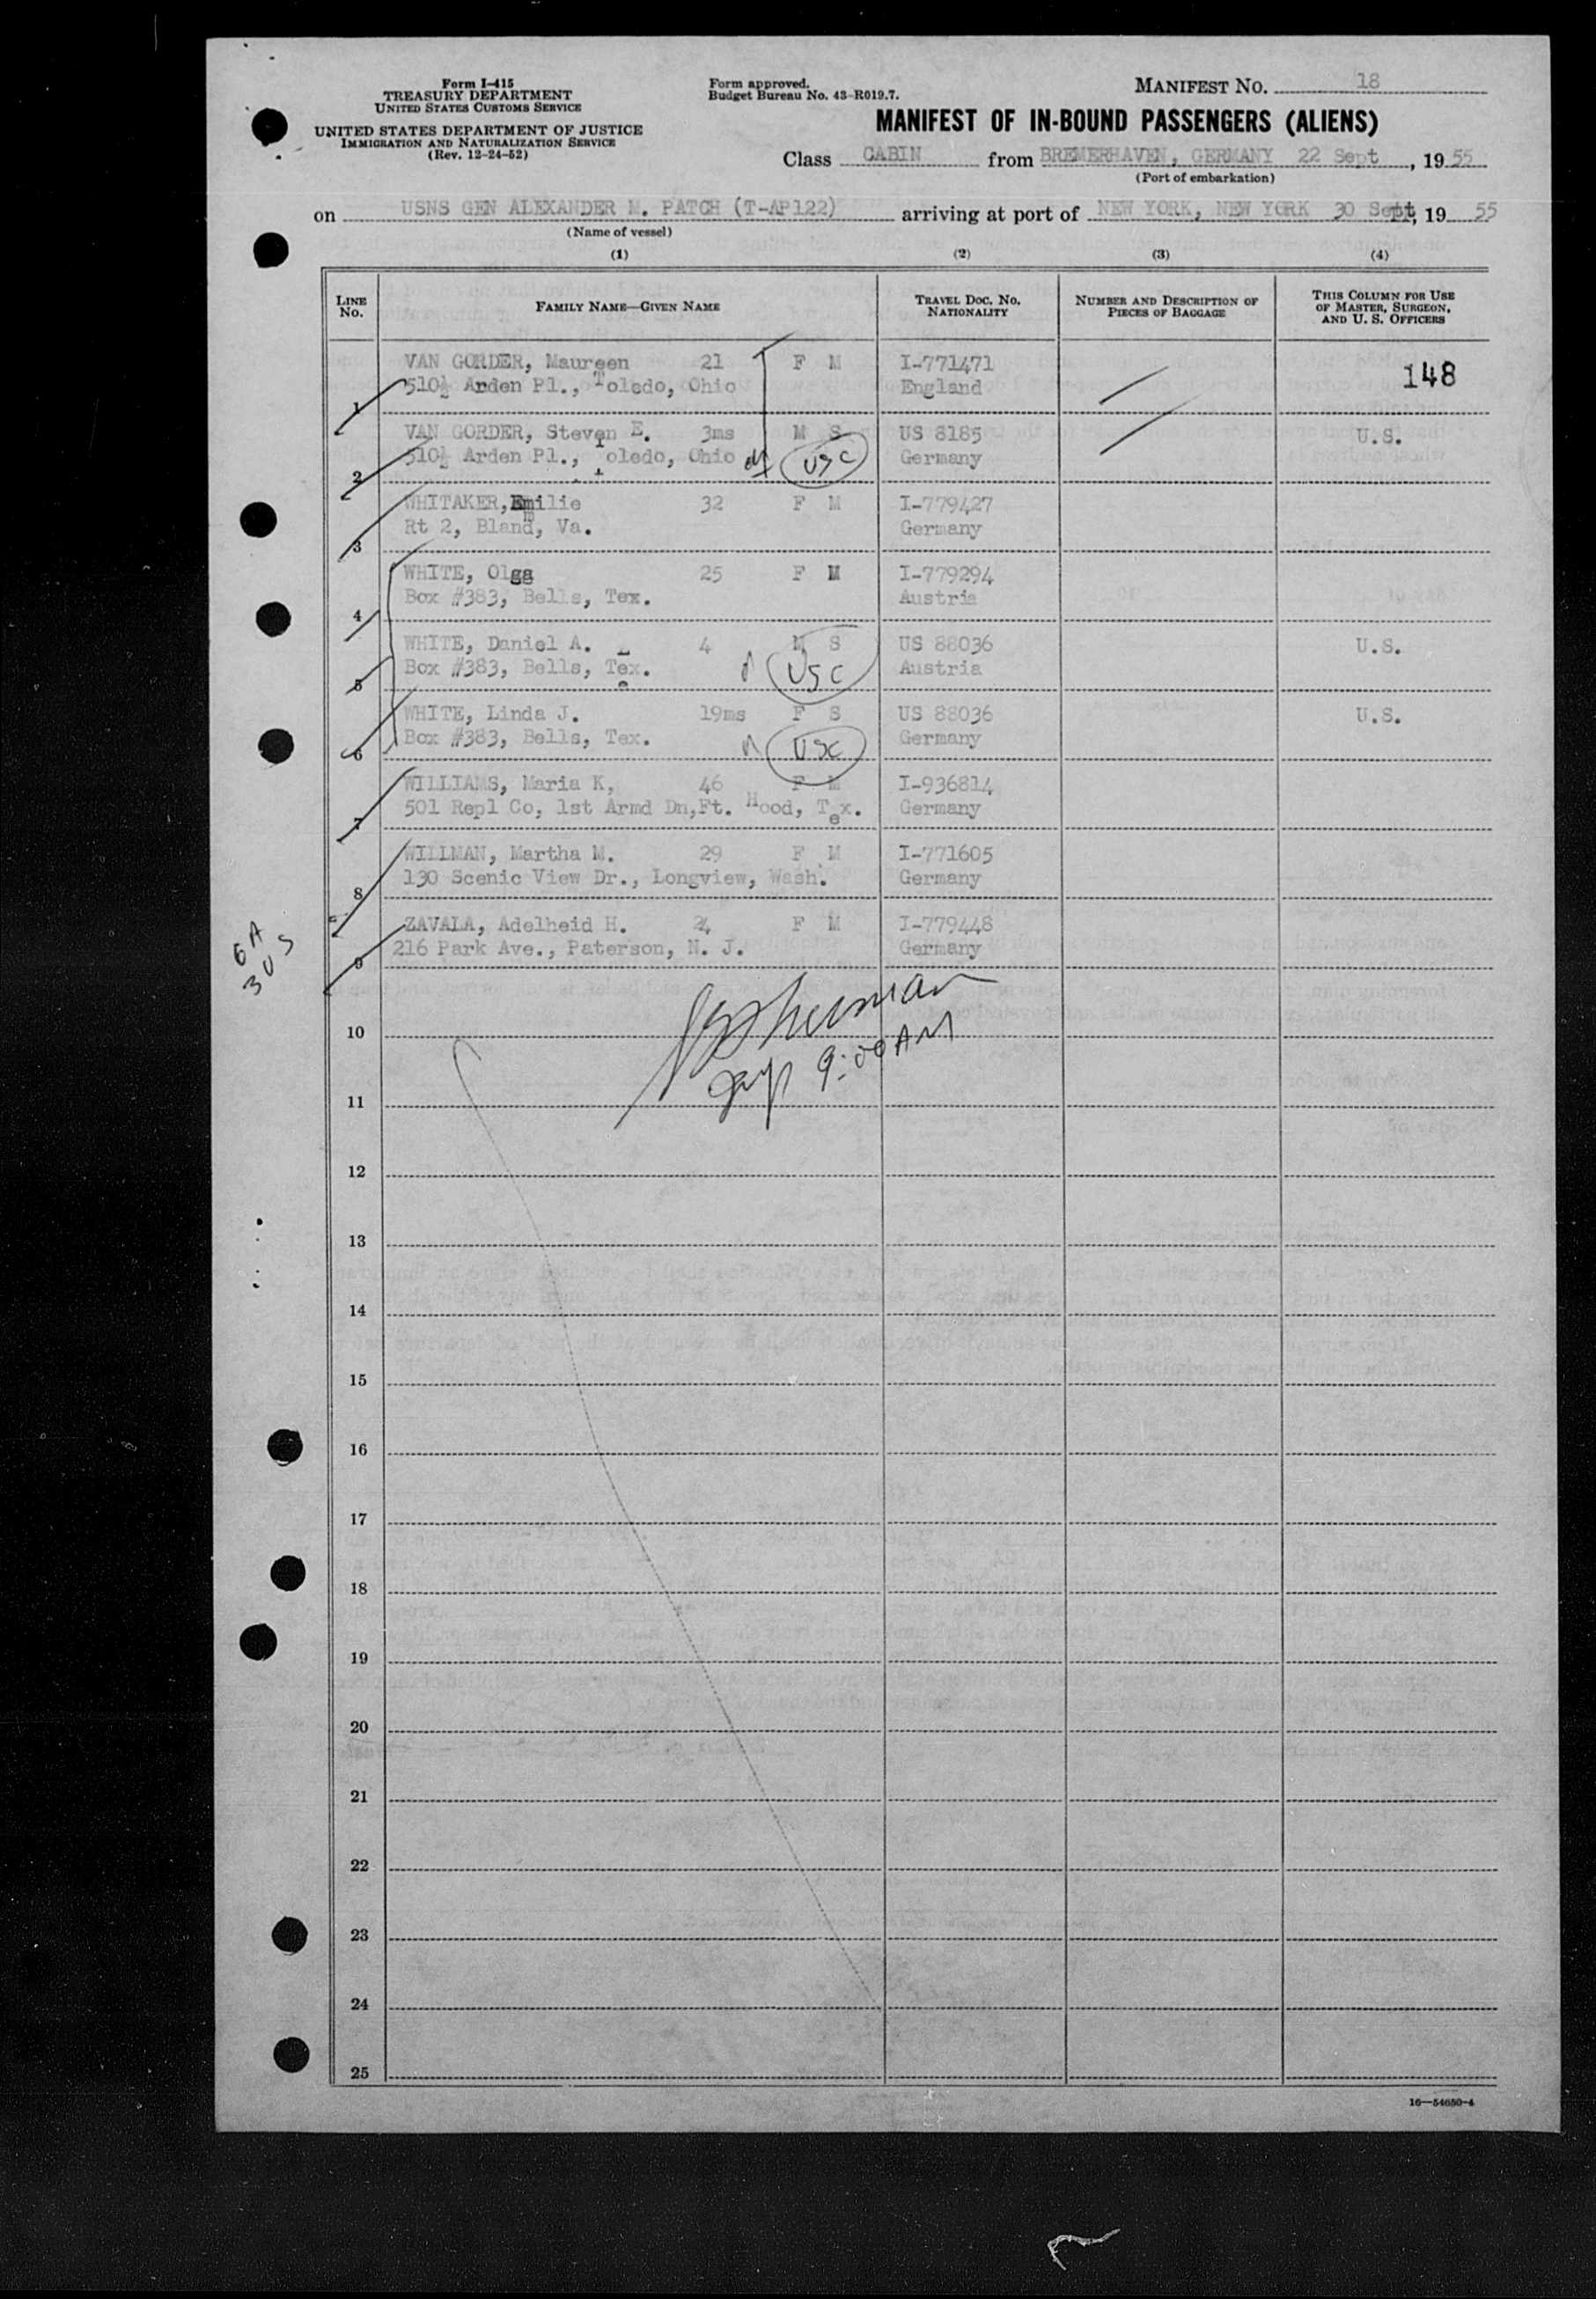 Form I-415
TREASURY DEPARTMENT
UNITED STATES CUSTOMS SERVICE
UNITED STATES DEPARTMENT OF JUSTICE
IMMIGRATION AND NATURALIZATION SERVICE
(Rev. 12-24-52)
Form approved.
Budget Bureau No. 43-R019.7.
MANIFEST NO. 18
MANIFEST OF IN-BOUND PASSENGERS (ALIENS)
Class CABIN from BREMERHAVEN, GERMANY 22 Sept, 1955
(Port of embarkation)
on USNS GEN ALEXANDER M. PATCH (T-AP122) arriving at port of NEW YORK, NEW YORK 30 Sept, 19 55
(Name of vessel)
(1) (2) (3) (4)
LINE NO. FAMILY NAME—GIVEN NAME TRAVEL DOC. NO. NATIONALITY NUMBER AND DESCRIPTION OF PIECES OF BAGGAGE THIS COLUMN FOR USE OF MASTER, SURGEON, AND U. S. OFFICERS
VAN GORDER, Maureen 21 F M I-771471 148
1 510½ Arden Pl., Toledo, Ohio England
VAN GORDER, Steven E. 3ms M S US 8185 U.S.
2 510½ Arden Pl., Toledo, Ohio USC Germany
WHITAKER, Emilie 32 F M I-779427
3 Rt 2, Bland, Va. Germany
WHITE, Olga 25 F M I-779294
4 Box #383, Bells, Tex. Austria
WHITE, Daniel A. 4 M S US 88036 U.S.
5 Box #383, Bells, Tex. USC Austria
WHITE, Linda J. 19ms F S US 88036 U.S.
6 Box #383, Bells, Tex. USC Germany
WILLIAMS, Maria K, 46 F M I-936814
7 501 Repl Co, 1st Armd Dn,Ft. Hood, Tex. Germany
WILLMAN, Martha M. 29 F M I-771605
8 130 Scenic View Dr., Longview, Wash. Germany
ZAVALA, Adelheid H. 24 F M I-779448
9 216 Park Ave., Paterson, N. J. Germany
6 A
3 US
10
9:00 AM
11
12
13
14
15
16
17
18
19
20
21
22
23
24
25
16—54650-4